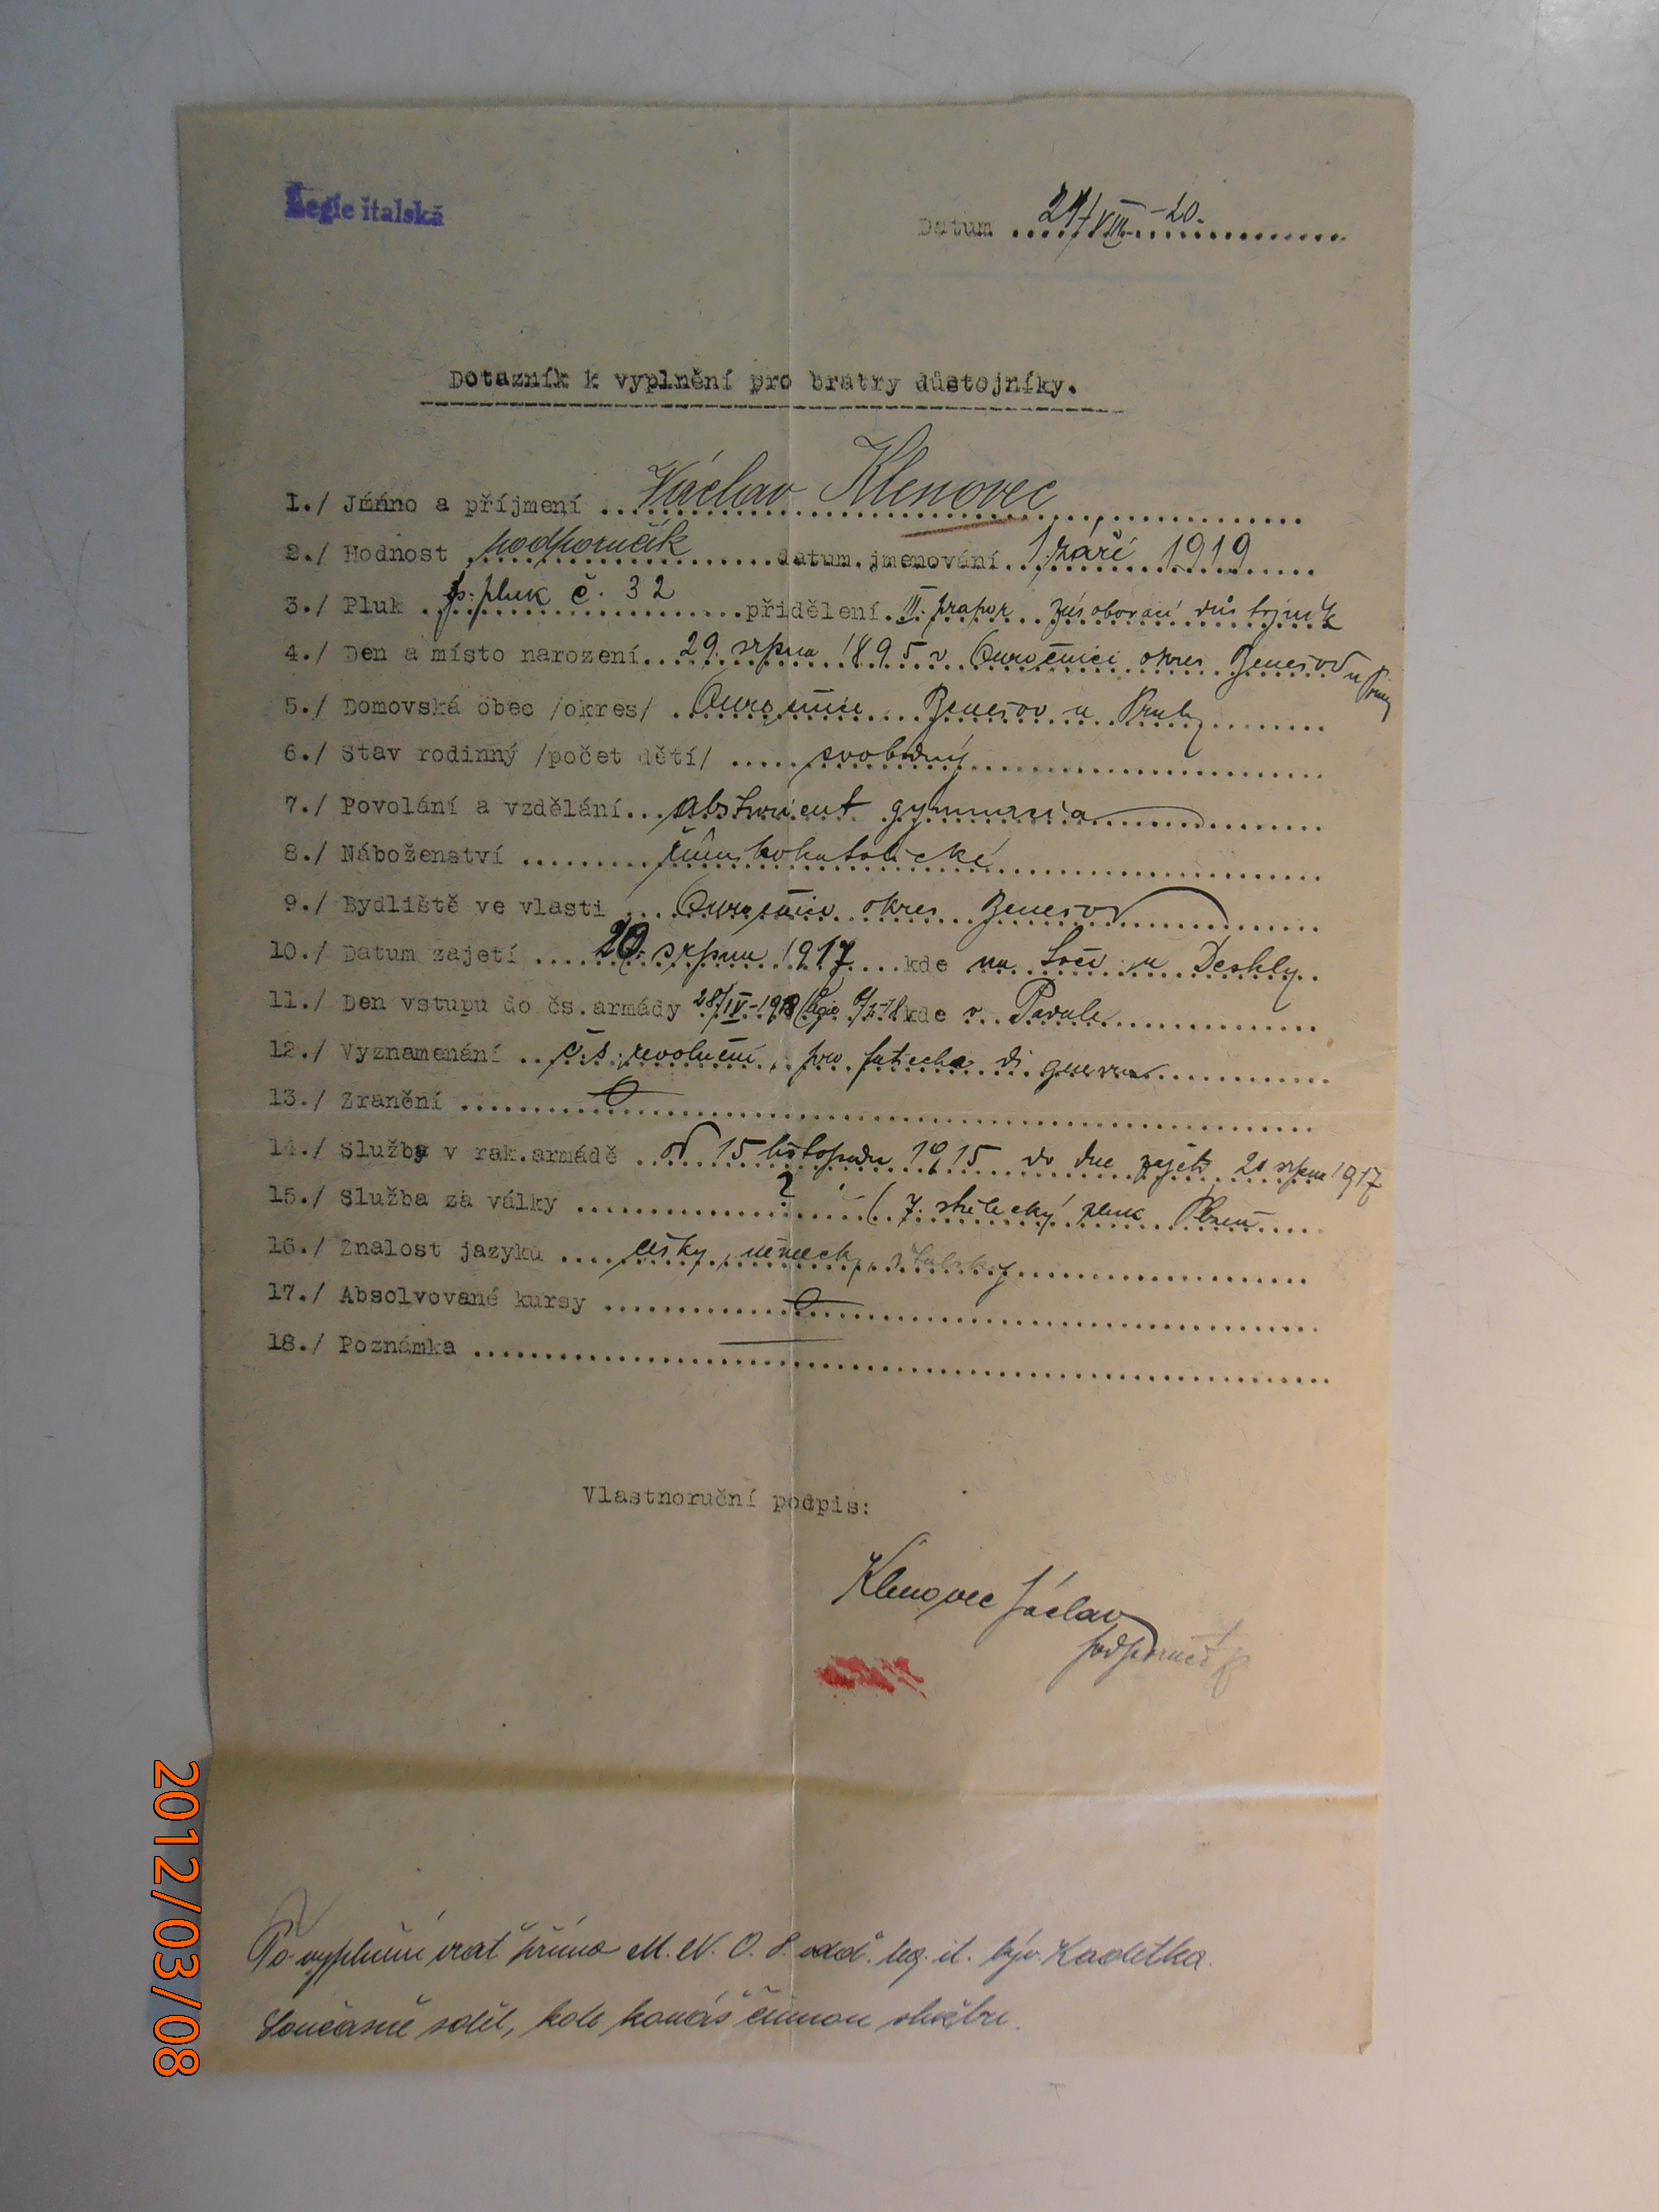 Legie italská
Datum 24/VIII-20.
Dotazník k vyplnění pro bratry důstojníky.
1./ Jméno a příjmení Václav Klenovec
2./ Hodnost podporučík datum jmenování 1 září 1919
3./ Pluk p. pluk č. 32 přidělení III. prapor zásobovací důstojník
4./ Den a místo narození 29. srpna 1895 v okres Benešov u Prahy
5./ Domovská obec /okres/ Benešov u Prahy
6./ Stav rodinný /počet dětí/ svobodný
7./ Povolání a vzdělání absturient gymnasia
8./ Náboženství římskokatolické
9./ Bydliště ve vlasti okres Benešov
10./ Datum zajetí 20. srpna 1917 kde na Soči u Deskly
11./ Den vstupu do čs. armády 28/IV-1918 kde v Padule
12./ Vyznamenání č.s. revoluční, pro di guerra
13./ Zranění
14./ Služby v rak. armádě od 15 listopadu 1915 do dne zajetí 20 srpna 1917
15./ Služba za války ? (7. střelecký pluk Plzeň
16./ Znalost jazyků česky, německy, italsky
17./ Absolvované kursy
18./ Poznámka
Vlastnoruční podpis:
Klenovec Václav
podporučík
Po vyplnění vrať přímo M. N. O. odd. leg. it. býv. Kadetka.
Současně sděl, kde konáš činnou službu.
2012/03/08